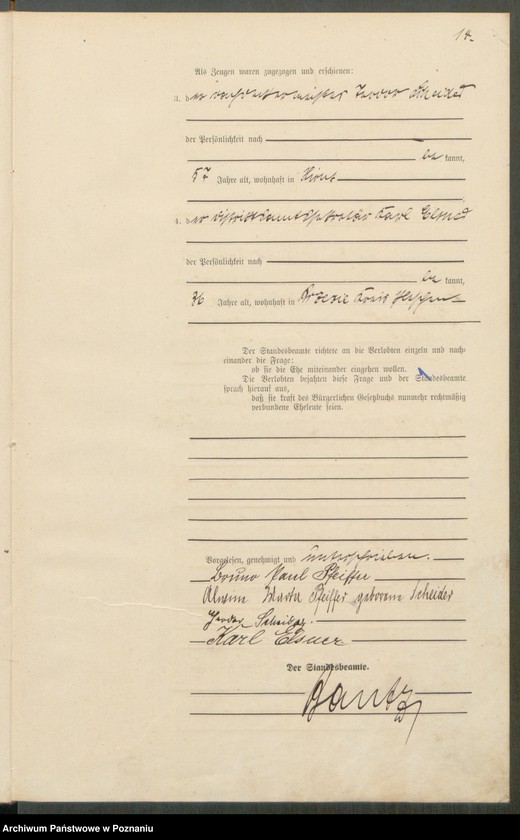 14.
Als Zeugen waren zugezogen und erschienen:
3. der Theodor Scheider
der Persönlichkeit nach
be kannt,
57 Jahre alt, wohnhaft in
4. der Distriktsamtssekretär Karl Elsner
der Persönlichkeit nach
be kannt,
36 Jahre alt, wohnhaft in
Der Standesbeamte richtete an die Verlobten einzeln und nach-
einander die Frage:
ob sie die Ehe miteinander eingehen wollen.
Die Verlobten bejahten diese Frage und der Standesbeamte
sprach hierauf aus,
daß sie kraft des Bürgerlichen Gesetzbuchs nunmehr rechtmäßig
verbundene Eheleute seien.
Vorgelesen, genehmigt und unterschrieben.
Bruno Paul Pfeiffer
Alwine Marta Pfeiffer geborene Scheider
Karl Elsner
Der Standesbeamte.
Archiwum Państwowe w Poznaniu